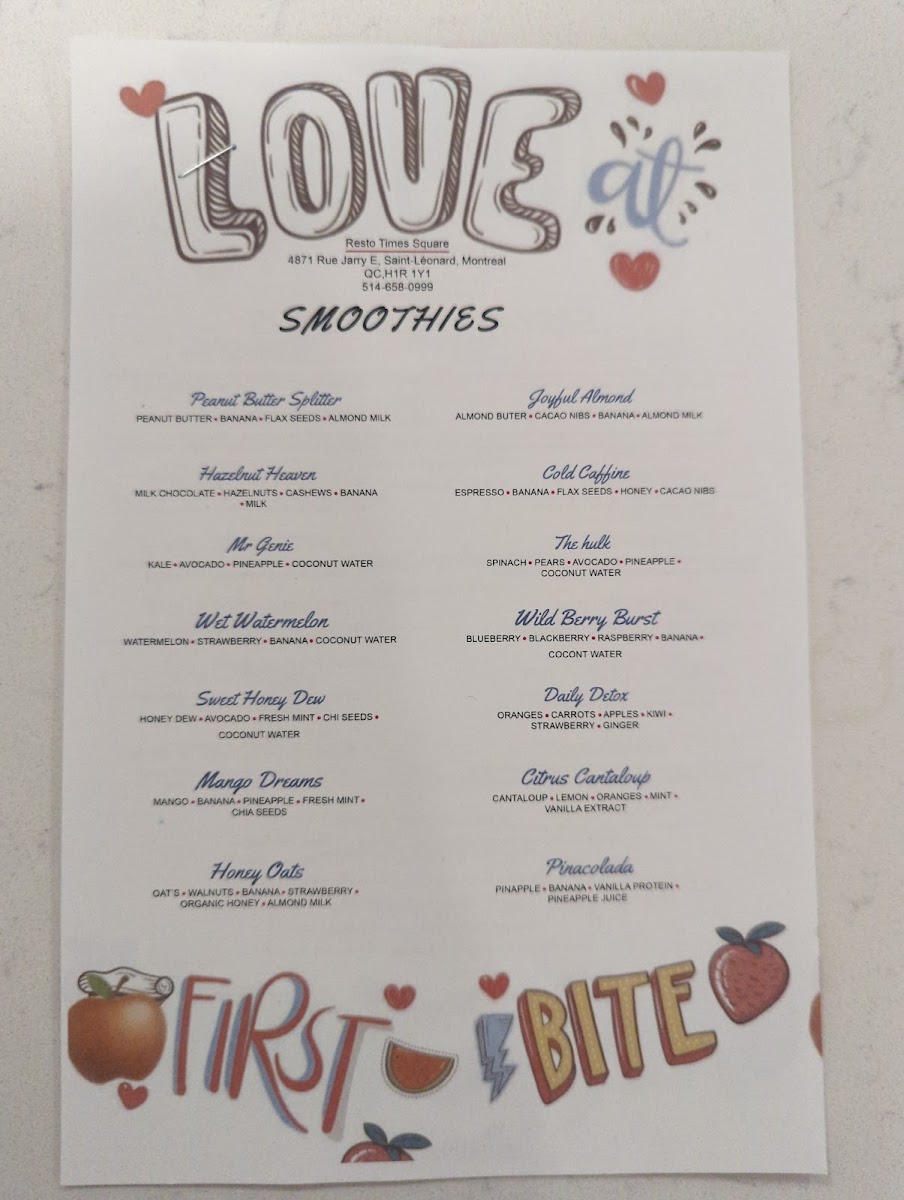 LOVE at
Resto Times Square
4871 Rue Jarry E, Saint-Léonard, Montreal
QC,H1R 1Y1
514-658-0999
SMOOTHIES
Peanut Butter Splitter
PEANUT BUTTER • BANANA • FLAX SEEDS • ALMOND MILK
Joyful Almond
ALMOND BUTER • CACAO NIBS • BANANA • ALMOND MILK
Hazelnut Heaven
MILK CHOCOLATE • HAZELNUTS • CASHEWS • BANANA
• MILK
Cold Caffine
ESPRESSO • BANANA • FLAX SEEDS • HONEY • CACAO NIBS
Mr Genie
KALE • AVOCADO • PINEAPPLE • COCONUT WATER
The hulk
SPINACH • PEARS • AVOCADO • PINEAPPLE •
COCONUT WATER
Wet Watermelon
WATERMELON • STRAWBERRY • BANANA • COCONUT WATER
Wild Berry Burst
BLUEBERRY • BLACKBERRY • RASPBERRY • BANANA •
COCONT WATER
Sweet Honey Dew
HONEY DEW • AVOCADO • FRESH MINT • CHI SEEDS •
COCONUT WATER
Daily Detox
ORANGES • CARROTS • APPLES • KIWI •
STRAWBERRY • GINGER
Mango Dreams
MANGO • BANANA • PINEAPPLE • FRESH MINT •
CHIA SEEDS
Citrus Cantaloup
CANTALOUP • LEMON • ORANGES • MINT •
VANILLA EXTRACT
Honey Oats
OAT'S • WALNUTS • BANANA • STRAWBERRY •
ORGANIC HONEY • ALMOND MILK
Pinacolada
PINAPPLE • BANANA • VANILLA PROTEIN •
PINEAPPLE JUICE
FIRST BITE